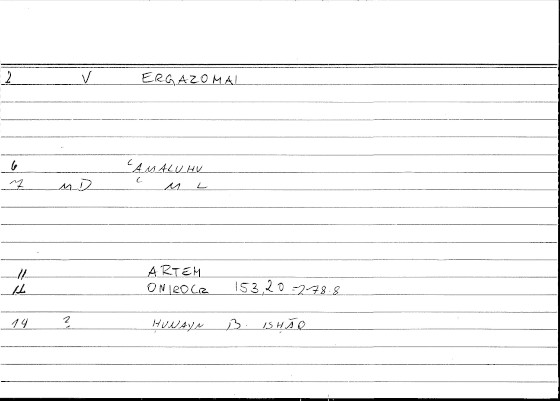 2 V ERGAZOMAI
6 ʿAMALUHU
7 MD ʿ M L
11 ARTEM
12 ONIROCR 153,20 = 278.8
14 ? ḤUNAYN B. ISḤĀQ